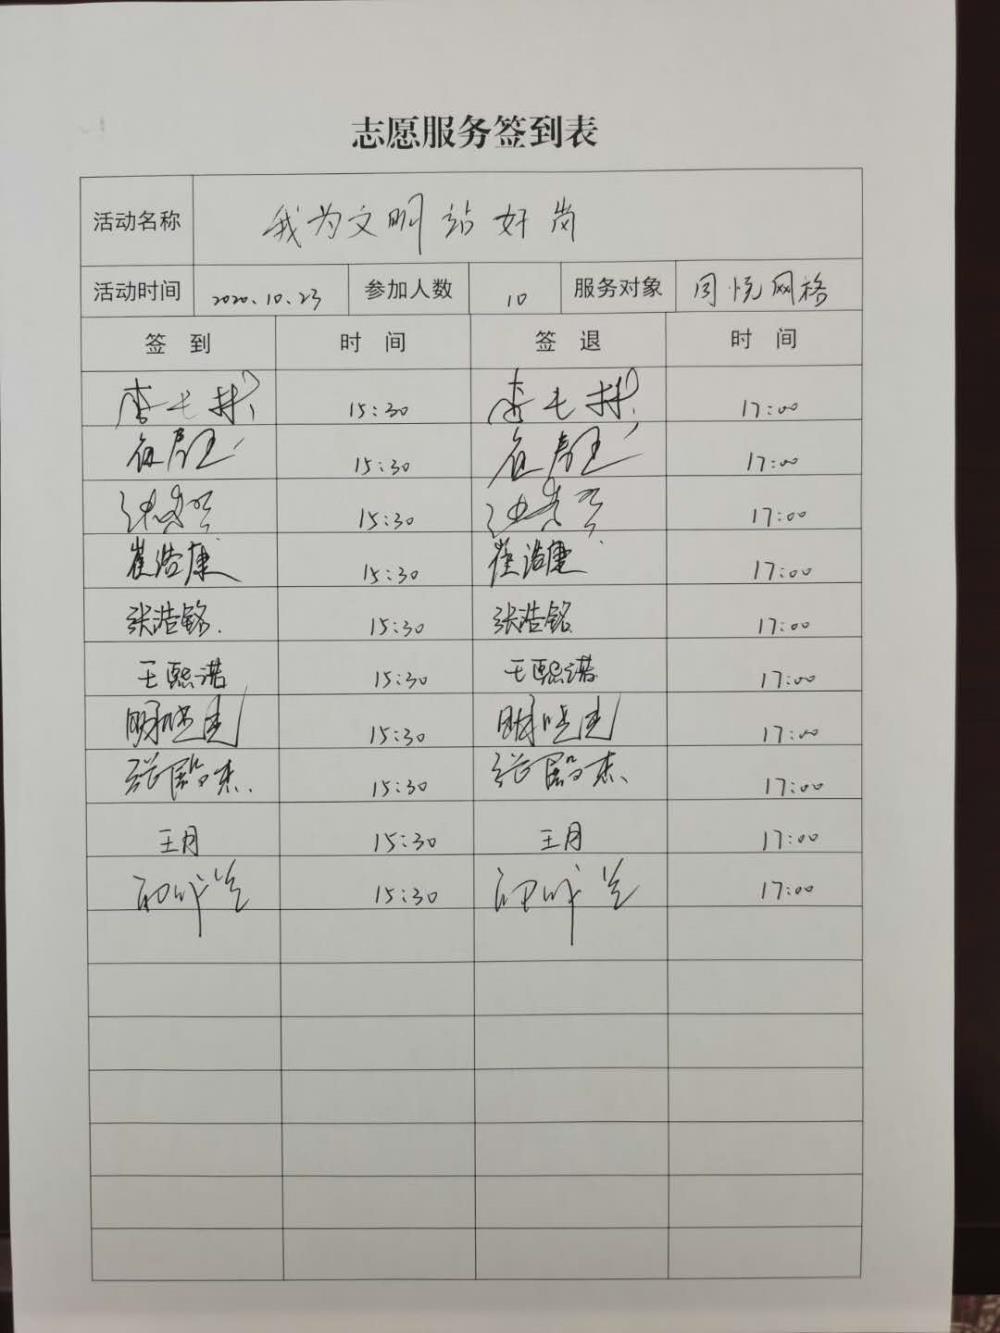 志愿服务签到表
活动名称 我为文明站好岗
活动时间 2020.10.23 参加人数 10 服务对象 同悦网格
签到 时间 签退 时间
15:30 17:00
15:30 17:00
15:30 17:00
崔浩康 15:30 崔浩康 17:00
张浩铭. 15:30 张浩铭 17:00
王熙诺 15:30 王熙诺 17:00
15:30 17:00
张 杰. 15:30 张 杰. 17:00
王月 15:30 王月 17:00
15:30 17:00